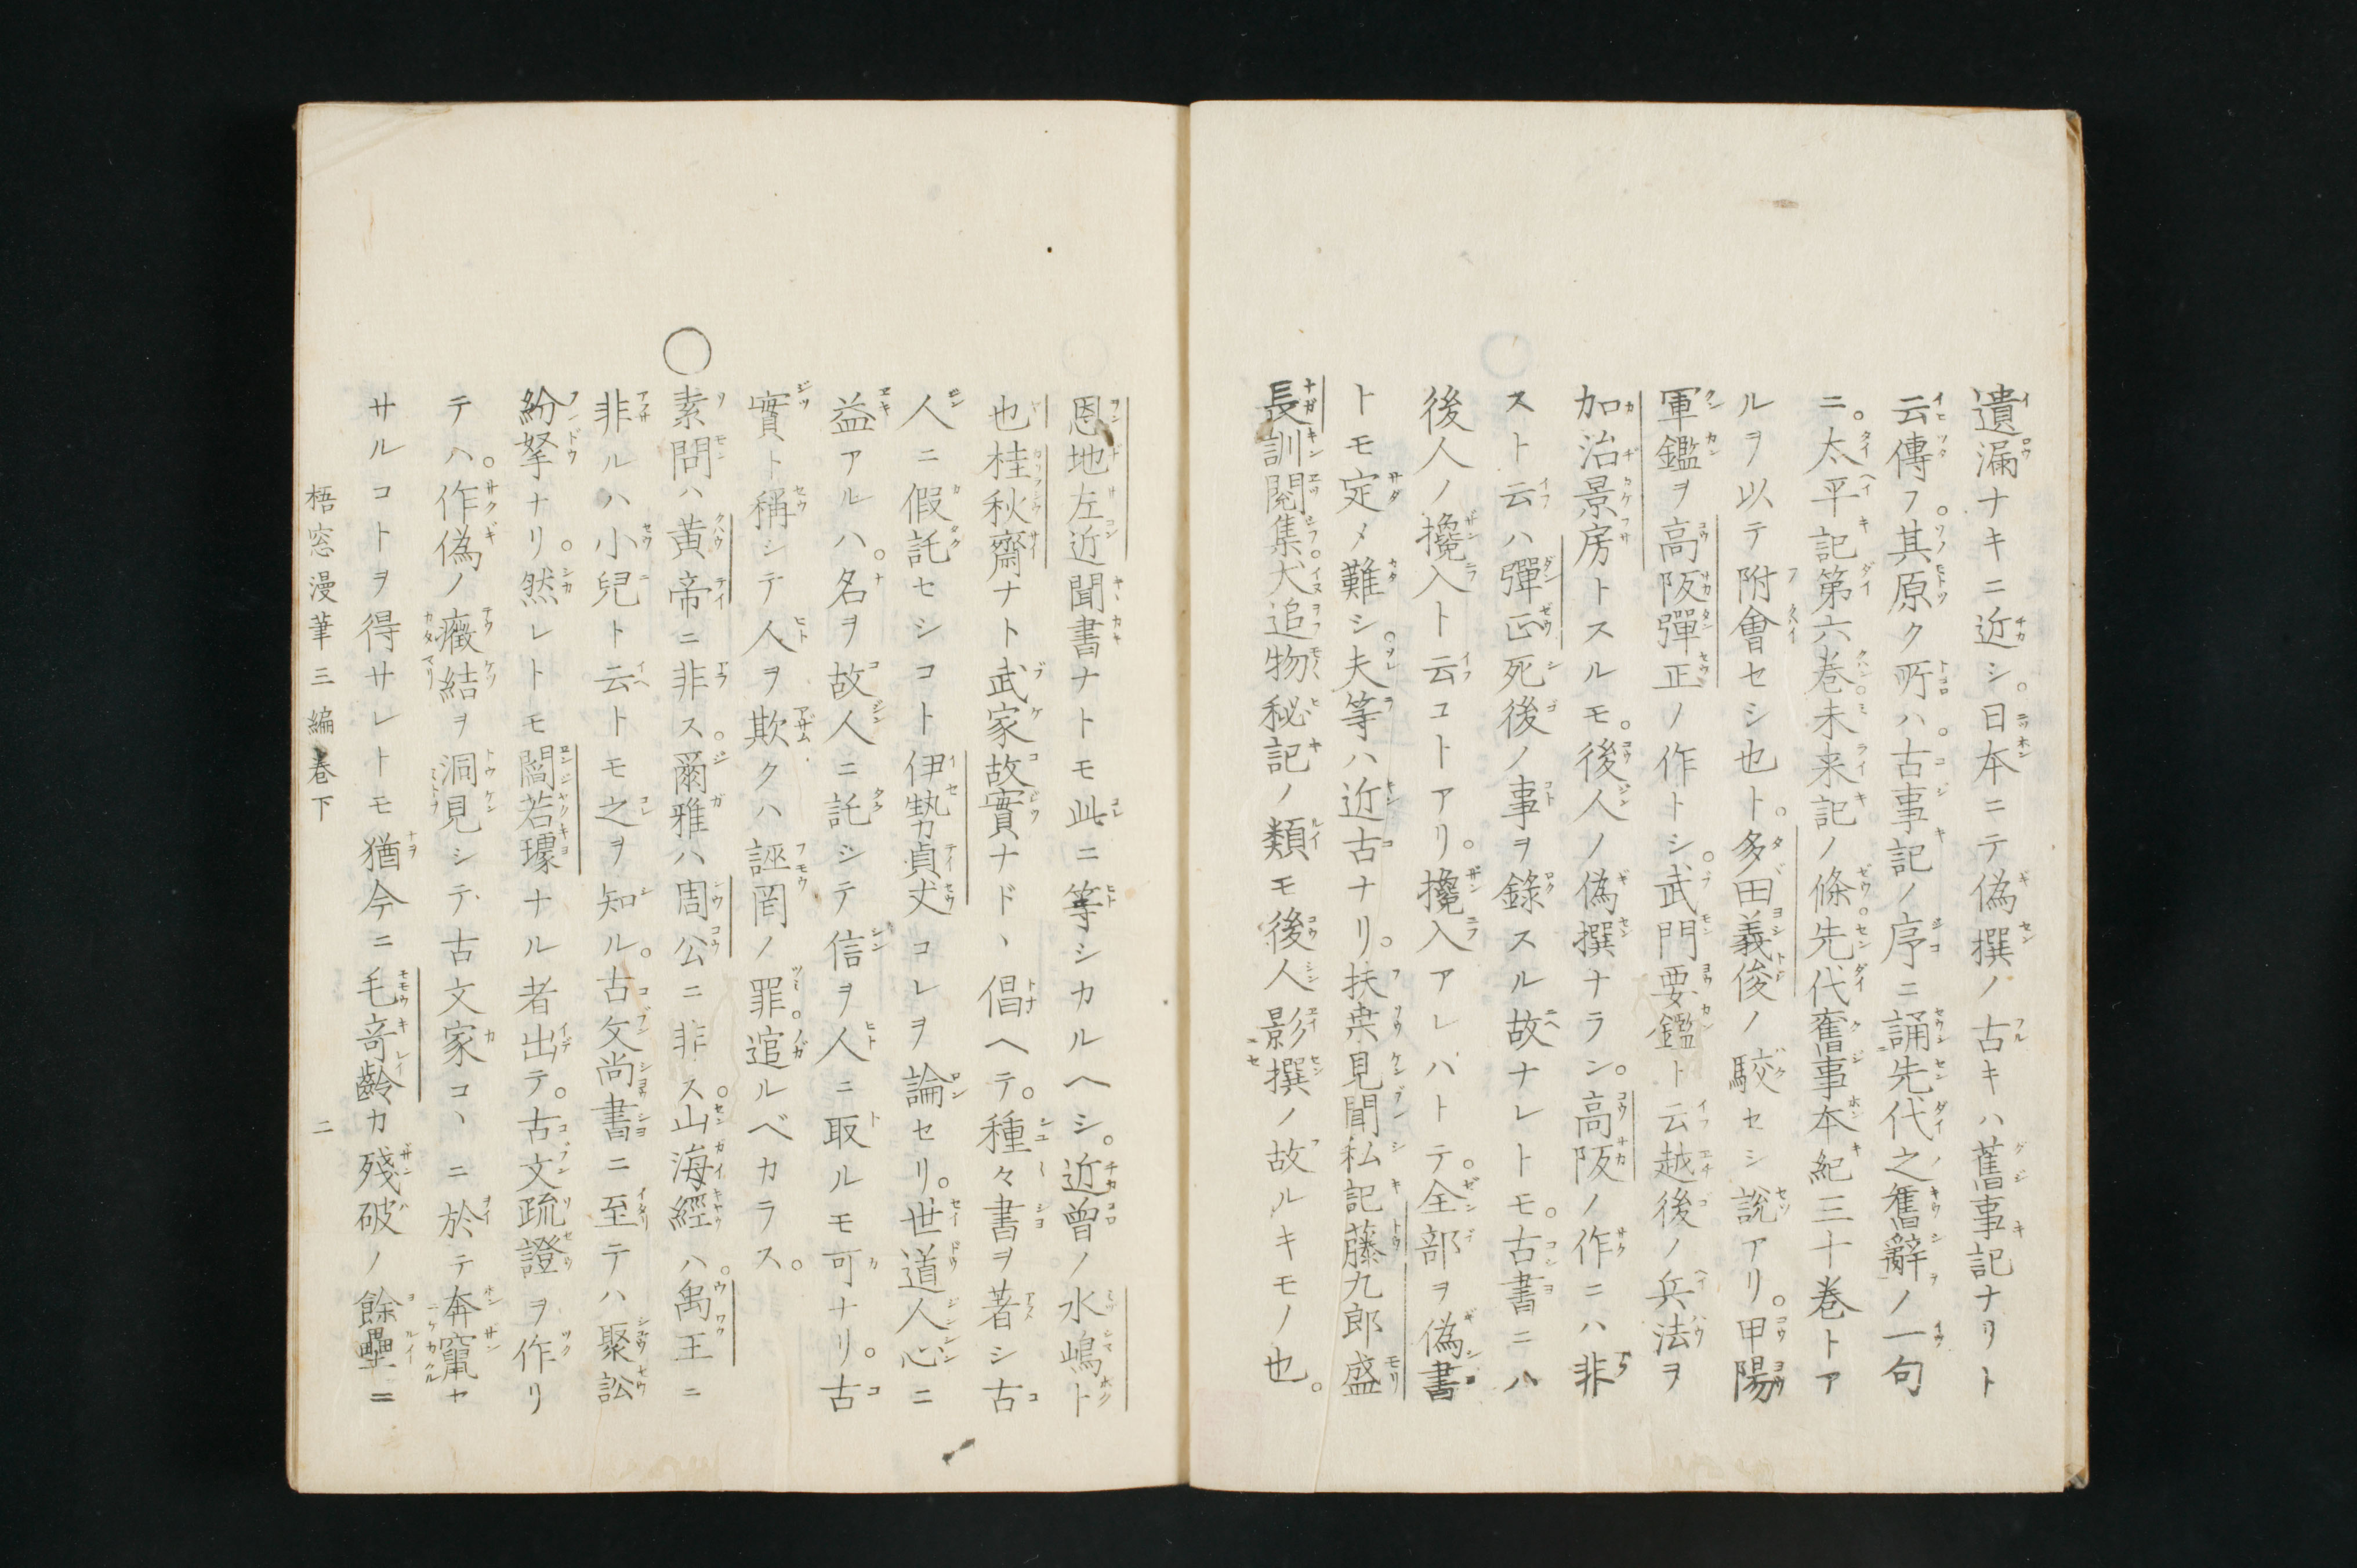 遺漏ナキニ近シ。日本ニテ偽撰ノ古キハ舊事記ナリト
云傳フ。其原ク所ハ。古事記ノ序ニ誦先代之舊辭ノ一句
ニ。太平記第六巻。未来記ノ條。先代舊事本紀三十巻トア
ルヲ以テ附會セシ也ト。多田義俊ノ駁セシ説アリ。甲陽
軍鑑ヲ高阪彈正ノ作トシ。武門要鑑ト云越後ノ兵法ヲ
加治景房トスルモ。後人ノ偽撰ナラン。高阪ノ作ニハ非
スト云ハ彈正死後ノ事ヲ錄スル故ナレトモ。古書ニハ
後人ノ攙入ト云コトアリ。攙入アレバトテ。全部ヲ偽書
トモ定メ難シ。夫等ハ近古ナリ。扶桒見聞私記藤九郎盛
長訓閲集。犬追物秘記ノ類モ後人影撰ノ故ルキモノ也。
恩地左近聞書ナトモ此ニ等シカルヘシ。近曽ノ水嶋ト
也桂秋齋ナト武家故實ナド、倡ヘテ。種々書ヲ著シ古
人ニ假託セシコト伊勢貞丈コレヲ論セリ。世道人心ニ
益アルハ。名ヲ故人ニ託シテ信ヲ人ニ取ルモ可ナリ。古
實ト稱シテ人ヲ欺クハ誣罔ノ罪。逭ルベカラス。
○素問ハ黃帝ニ非ス。爾雅ハ周公ニ非ス。山海經ハ。禹王ニ
非ルハ小兒ト云トモ之ヲ知ル。古文尚書ニ至テハ聚訟
紛拏ナリ。然レトモ閻若璩ナル者出テ。古文疏證ヲ作リ
テハ。作偽ノ癥結ヲ洞見シテ古文家コヽニ於テ奔竄セ
サルコトヲ得サレトモ猶今ニ毛竒齡カ殘破ノ餘壘ニ
梧窓漫筆三編巻下 二